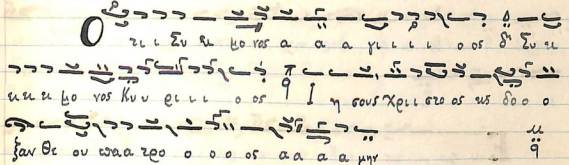 Ο τι ι Συ ει μο νος α α α γι ι ι ι ο ος δι Συ ει
ει ει μο νος Κυ υ ρι ι ι ο ος Ι η σους Χρι ι στο ος εις δο ο ο
ξαν Θε ου πα α τρο ο ο ο ος α α α α μην